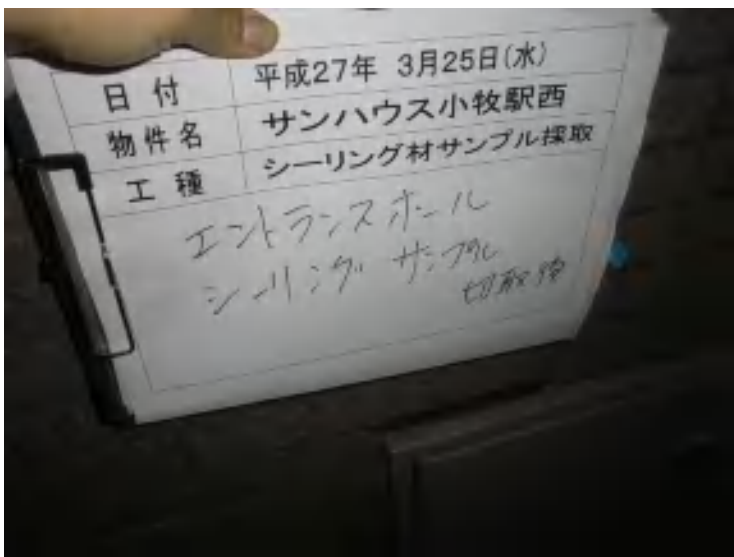 日付 平成27年 3月25日(水)
物件名 サンハウス小牧駅西
工種 シーリング材サンプル採取
エントランスホール
シーリング サンプル
切取後